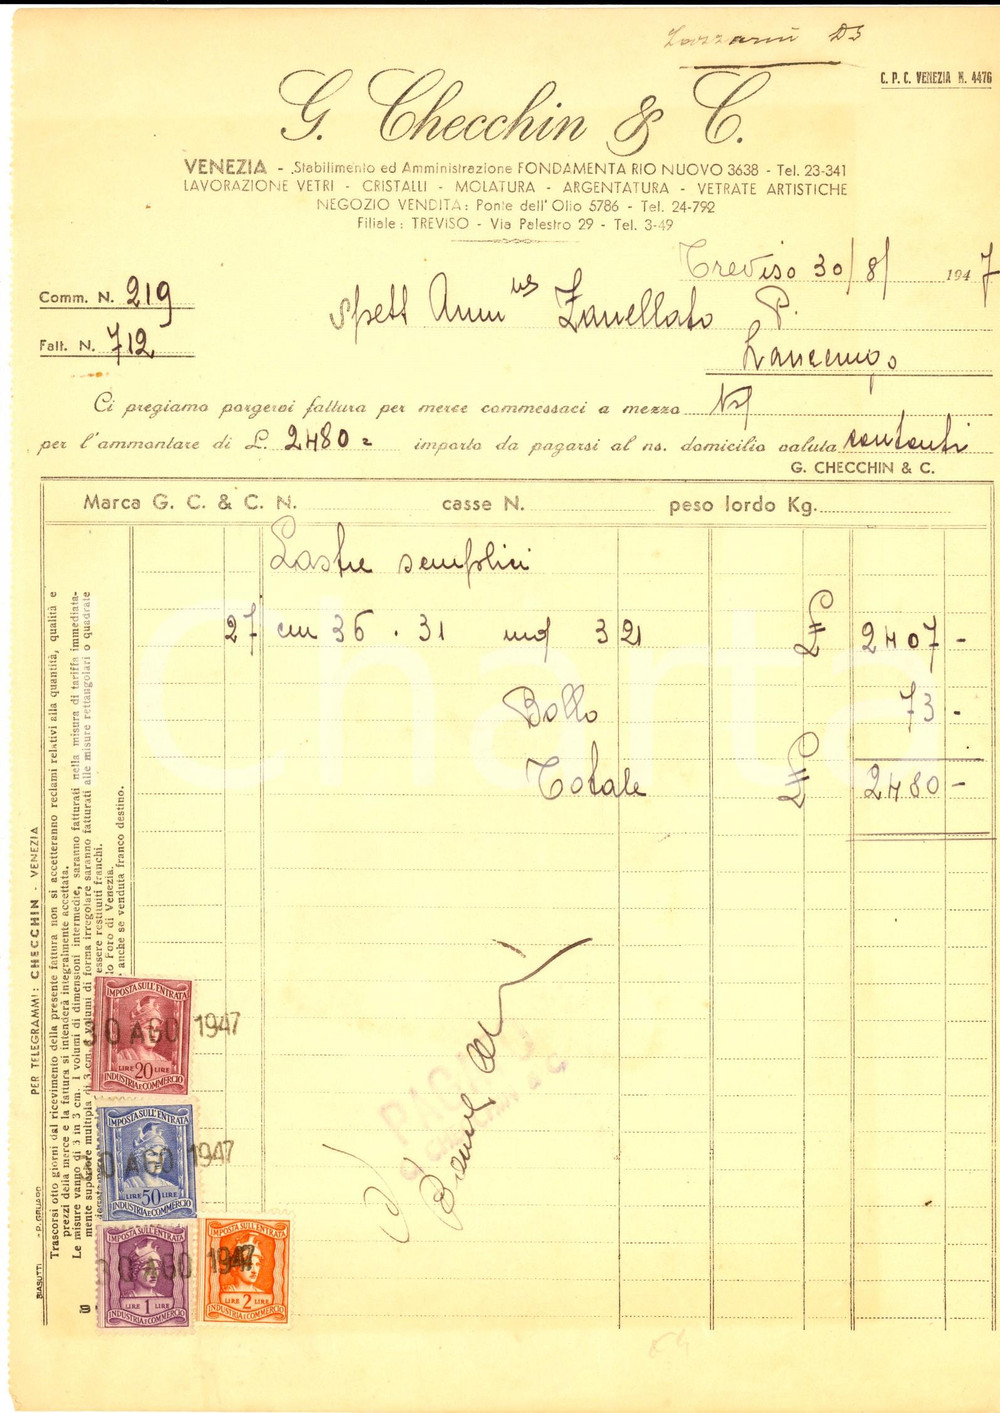 C. P. C. VENEZIA N. 4476
G. Checchin & C.
VENEZIA - Stabilimento ed Amministrazione FONDAMENTA RIO NUOVO 3638 - Tel. 23-341
LAVORAZIONE VETRI - CRISTALLI - MOLATURA - ARGENTATURA - VETRATE ARTISTICHE
NEGOZIO VENDITA: Ponte dell'Olio 5786 - Tel. 24-792
Filiale: TREVISO - Via Palestro 29 - Tel. 3-49
Treviso 30/8/ 1947
Comm. N. 219
Spett Amm Zanellato P.
Fatt. N. 712
Lancenigo
Ci pregiamo porgervi fattura per merce commessaci a mezzo
per l'ammontare di L. 2480= importo da pagarsi al ns. domicilio valuta contanti
G. CHECCHIN & C.
Marca G. C. & C. N. casse N. peso lordo Kg.
Lastre semplici
27 cm 36 . 31 mq 3 21 2407 -
Bollo 73 -
Totale 2480 -
PER TELEGRAMMI: CHECCHIN - VENEZIA
Trascorsi otto giorni dal ricevimento della presente fattura non si accetteranno reclami relativi alla quantità, qualità e
prezzi della merce e la fattura si intenderà integralmente accettata.
Le misure vanno di 3 in 3 cm. I volumi di dimensioni intermedie, saranno fatturati nella misura di tariffa immediata-
mente superiore multipla di 3 cm. I volumi di forma irregolare saranno fatturati alle misure rettangolari o quadrate
essere restituiti franchi.
Foro di Venezia.
anche se venduta franco destino.
BIASUTTI - P. GRUARO
IMPOSTA SULL'ENTRATA
30 AGO 1947
LIRE 20 LIRE
INDUSTRIA E COMMERCIO
IMPOSTA SULL'ENTRATA
30 AGO 1947
LIRE 50 LIRE
INDUSTRIA E COMMERCIO
IMPOSTA SULL'ENTRATA
30 AGO 1947
LIRE 1 LIRE
INDUSTRIA E COMMERCIO
IMPOSTA SULL'ENTRATA
LIRE 2 LIRE
INDUSTRIA E COMMERCIO
Charta